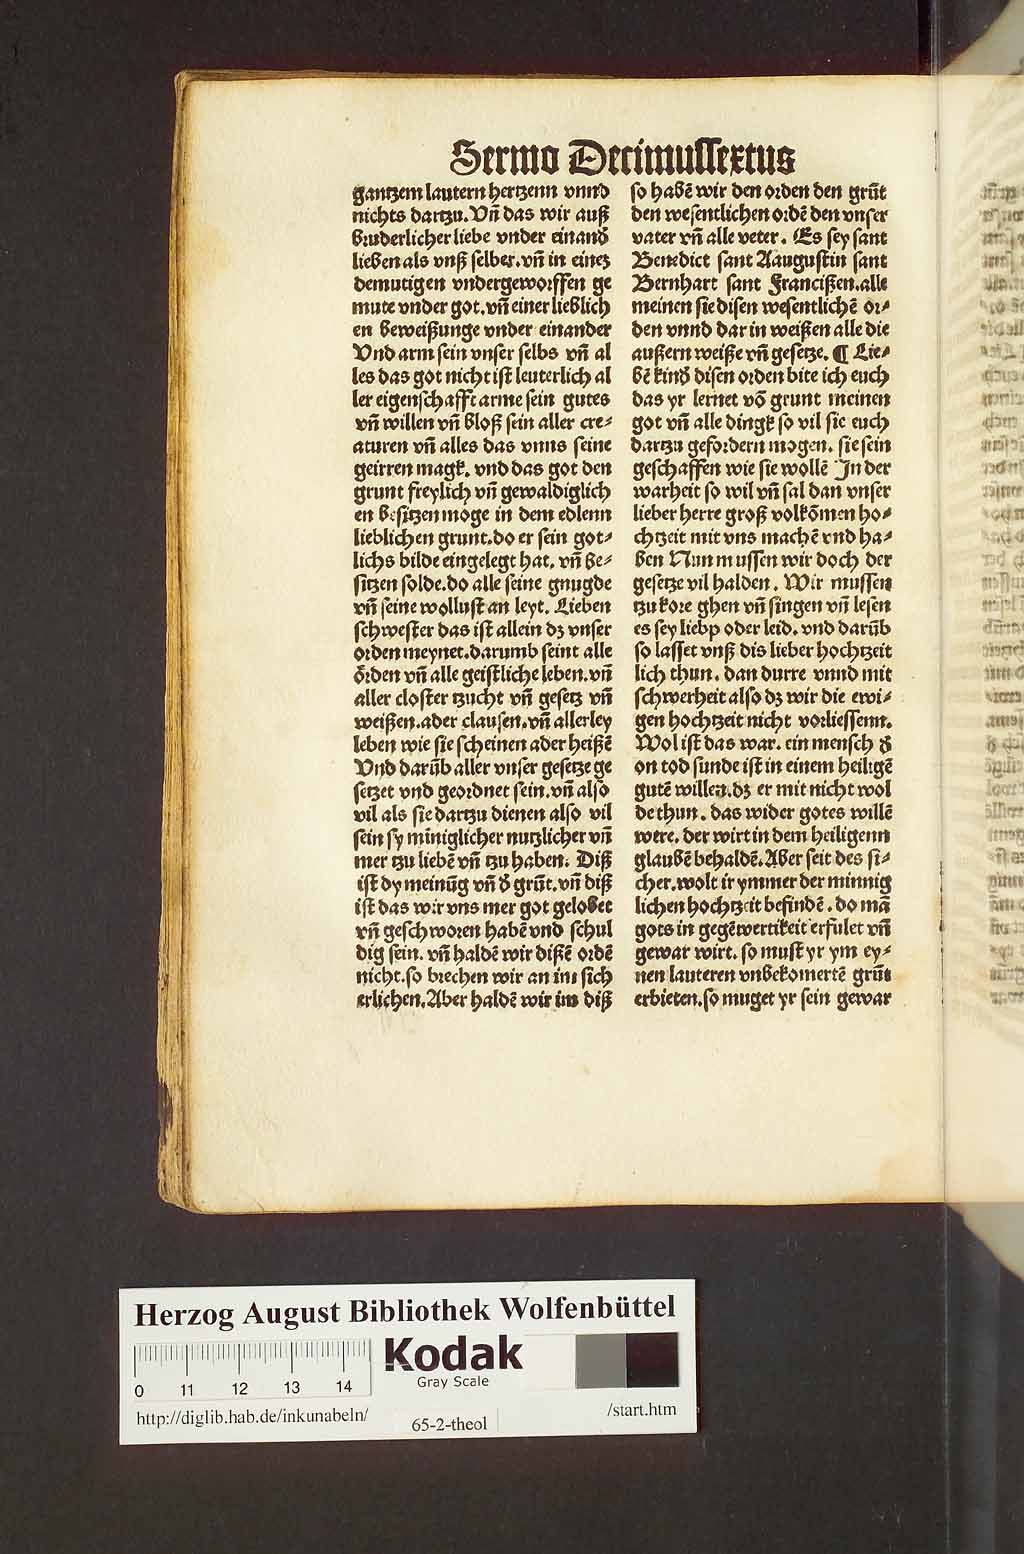 Sermo Decimussextus
gantzem lautern hertzenn vnnd
nichts dartzu. Vn̄ das wir auß
bruderlicher liebe vnder einand̕
lieben als vnß selber. vn̄ in einez
demutigen vndergeworffen ge
mute vnder got. vn̄ einer lieblich
en beweißunge vnder einander
Vnd arm sein vnser selbs vn̄ al
les das got nicht ist leuterlich al
ler eigenschafft arme sein gutes
vn̄ willen vn̄ bloß sein aller cre⸗
aturen vn̄ alles das vnns seine
geirren magk. vnd das got den
grunt freylich vn̄ gewaldiglich
en besitzen moge in dem edlenn
lieblichen grunt. do er sein got⸗
lichs bilde eingelegt hat. vn̄ be⸗
sitzen solde. do alle seine gnugde
vn̄ seine wollust an leyt. Lieben
schwester das ist allein dz vnser
orden meynet. darumb seint alle
ȯrden vn̄ alle geistliche leben. vn̄
aller closter tzucht vn̄ gesetz vn̄
weißen. ader clausen. vn̄ allerley
leben wie sie scheinen ader heißē
Vnd darūb aller vnser gesetze ge
setzet vnd geordnet sein. vn̄ also
vil als sie dartzu dienen also vil
sein sy mīniglicher nutzlicher vn̄
mer tzu liebē vn̄ tzu haben. Diß
ist dy meinūg vn̄ d̕ grūt. vn̄ diß
ist das wir vns mer got gelobet
vn̄ geschworen habē vnd schul
dig sein. vn̄ haldē wir dißē ordē
nicht. so brechen wir an im sich
erlichen. Aber haldē wir im diß
so habē wir den orden den grūt
den wesentlichen ordē den vnser
vater vn̄ alle veter. Es sey sant
Benedict sant Aaugustin sant
Bernhart sant Francißen. alle
meinen sie disen wesentlichē or⸗
den vnnd dar in weißen alle die
außern weiße vn̄ gesetze. ¶ Lie⸗
bē kind̕ disen orden bite ich euch
das yr lernet vō grunt meinen
got vn̄ alle dingk so vil sie euch
dartzu gefordern mogen. sie sein
geschaffen wie sie wollē In der
warheit so wil vn̄ sal dan vnser
lieber herre groß volkōmen ho⸗
chtzeit mit vns machē vnd ha⸗
ben Nun mussen wir doch der
gesetze vil halden. Wir mussen
tzu kore ghen vn̄ singen vn̄ lesen
es sey liebp oder leid. vnd darūb
so lasset vnß dis lieber hochtzeit
lich thun. dan durre vnnd mit
schwerheit also dz wir die ewi⸗
gen hochtzeit nicht vorliessenn.
Wol ist das war. ein mensch d̕
on tod sunde ist in einem heiligē
gutē willen. dz er mit nicht wol
de thun. das wider gotes willē
were. der wirt in dem heiligenn
glaubē behaldē. Aber seit des si⸗
cher. wolt ir ymmer der minnig
lichen hochtzeit befindē. do mā
gots in gegēwertikeit erfulet vn̄
gewar wirt. so must yr ym ey⸗
nen lauteren vnbekomertē grūt
erbieten. so muget yr sein gewar
Herzog August Bibliothek Wolfenbüttel
0 11 12 13 14
Kodak
Gray Scale
http://diglib.hab.de/inkunabeln/
65-2-theol
/start.htm